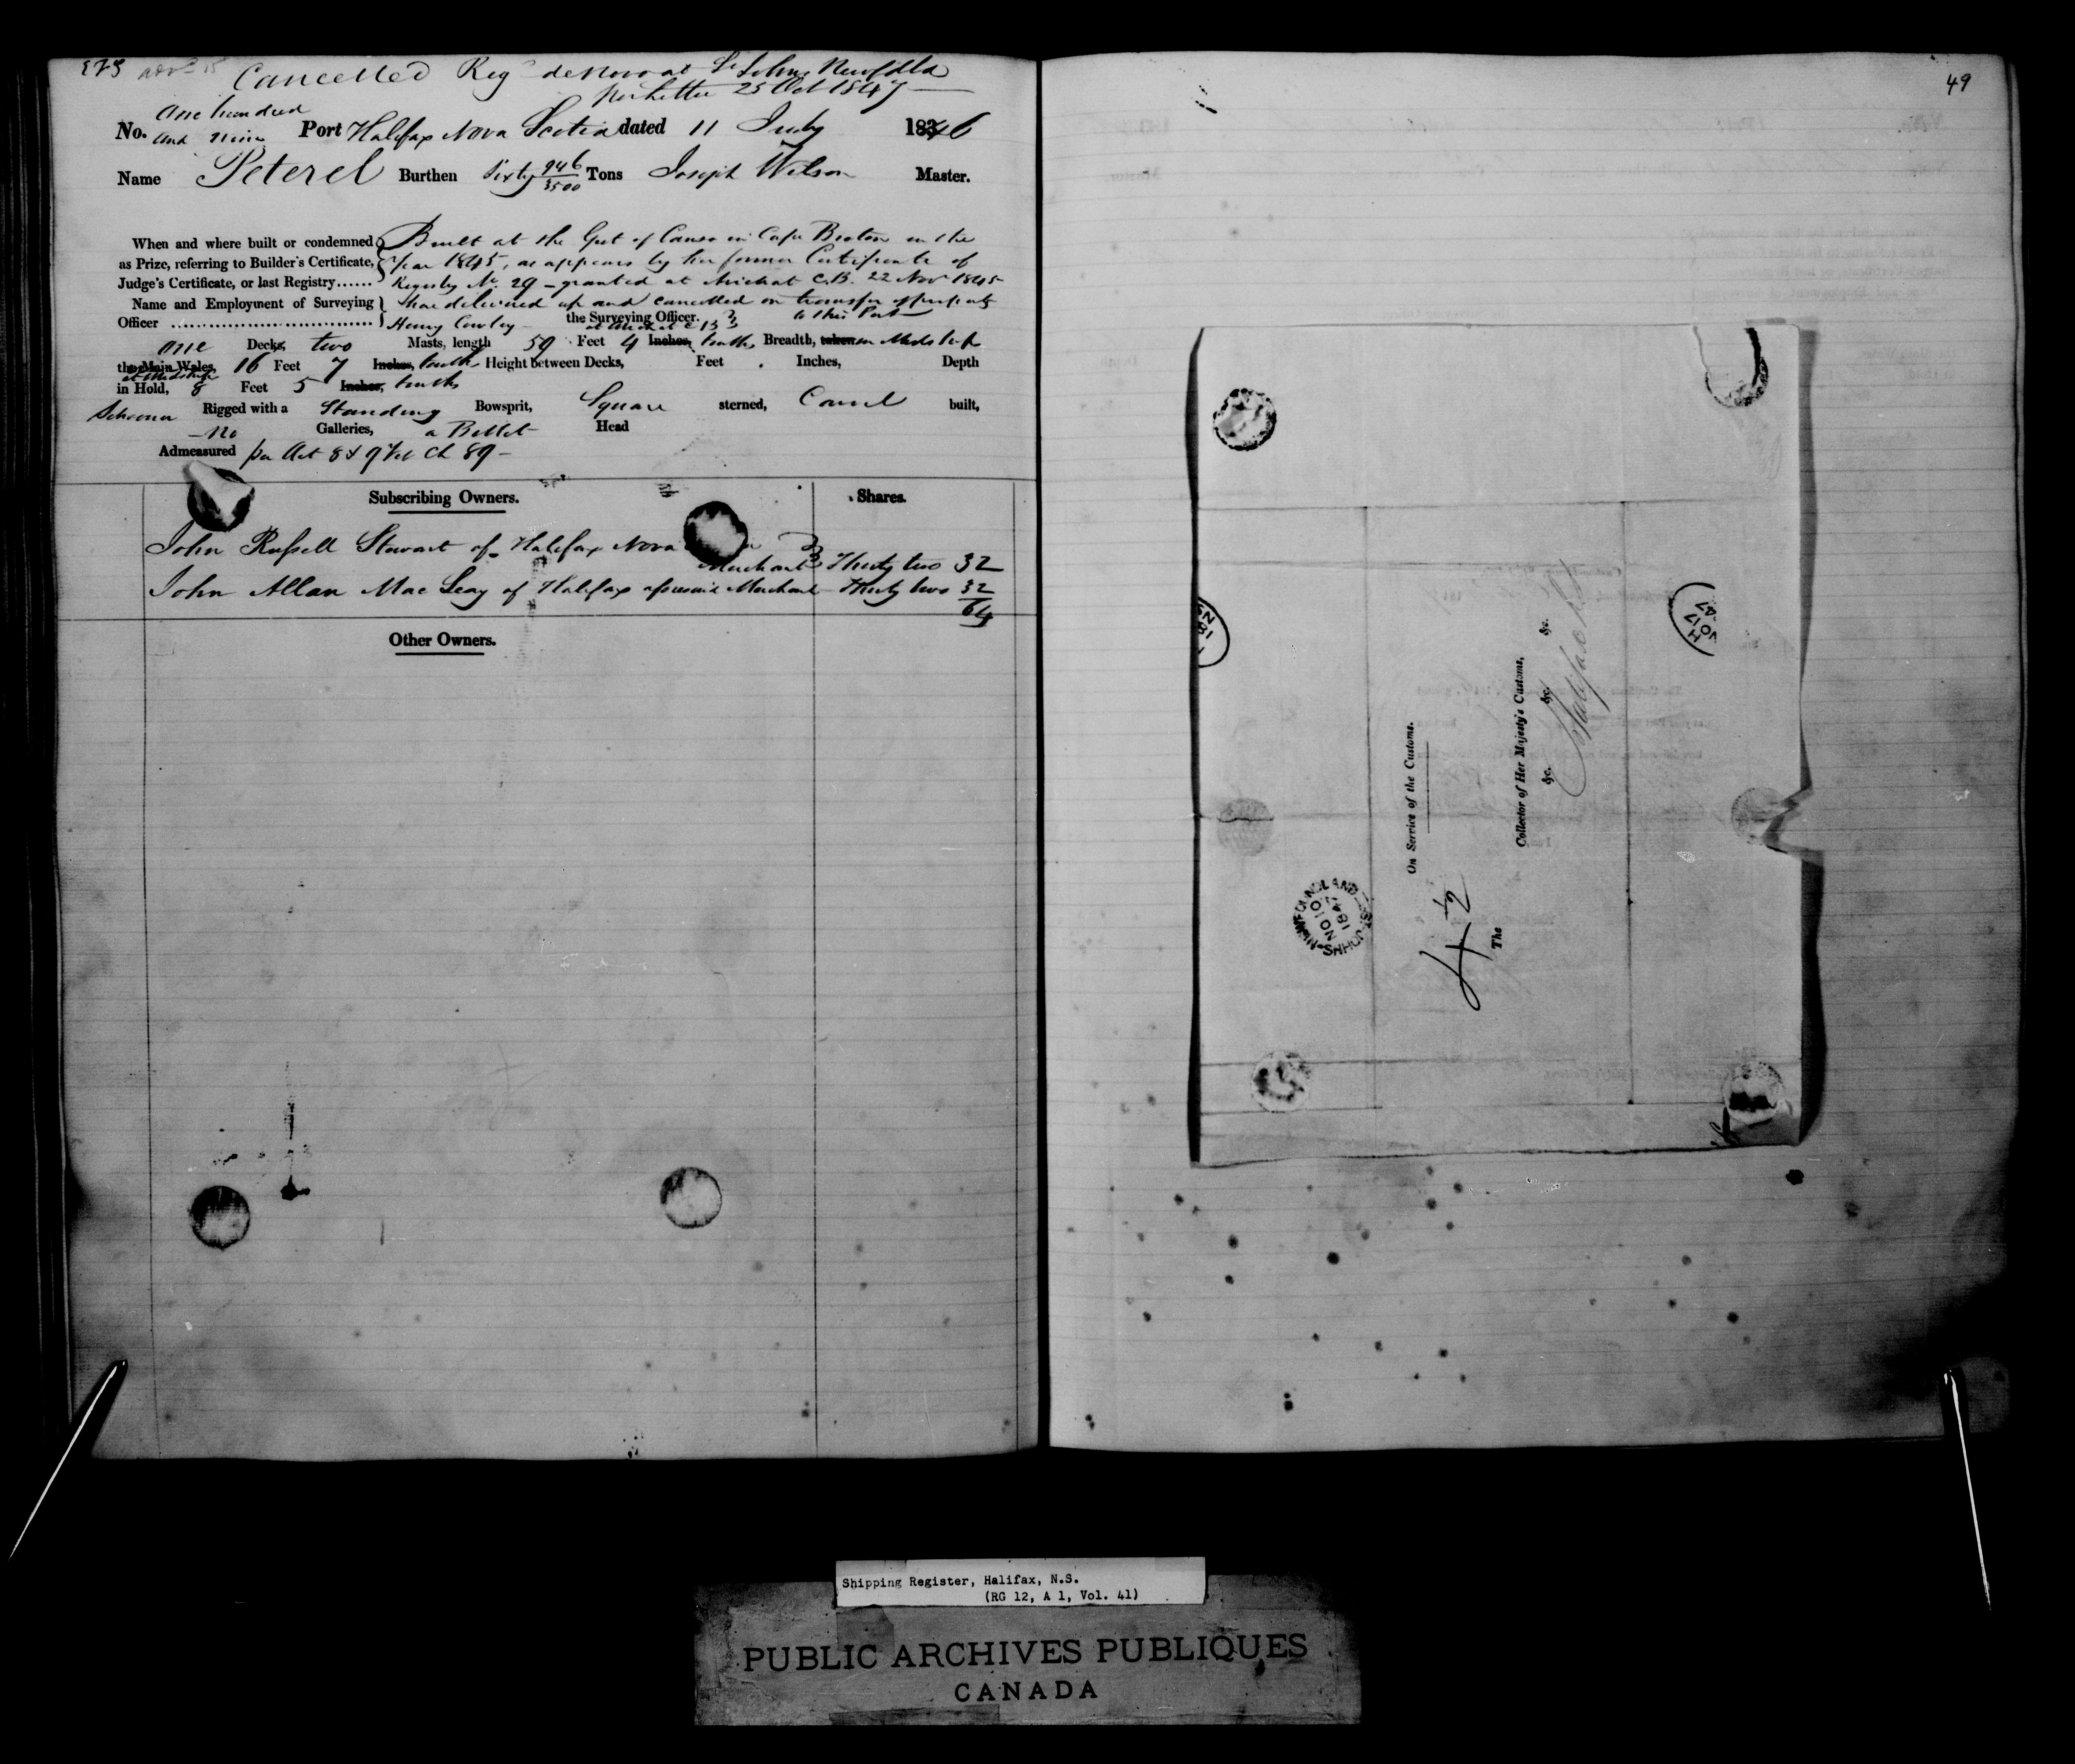 Cancelled Reg^d de Novo at St Johns Newfdld
per Letter 25 Oct 1847
No. One hundred and nine Port Halifax Nova Scotia dated 11 July 1846
Name Peterel Burthen Sixty 946/3500 Tons Joseph Wilson Master.
When and where built or condemned { Built at the Gut of Canso in Cape Breton in the
as Prize, referring to Builder's Certificate, Year 1845, as appears by her former Certificate of
Judge's Certificate, or last Registry...... Registry No. 29 - granted at Arichat C.B. 22 Nov 1845
Name and Employment of Surveying } delivered up and cancelled on transfer of property
Officer Henry Cowley the Surveying Officer. to this Port
at Arichat C B
One Decks, two Masts, length 59 Feet 4 Inches, tenths Breadth, taken in Midships
the Main Wales, 16 Feet 7 Inches, tenths Height between Decks, Feet Inches, Depth
at Midships
in Hold, 8 Feet 5 Inches, tenths
Schooner Rigged with a Standing Bowsprit, Square sterned, Carvel built,
no Galleries, a Billet Head
Admeasured per Act 8 & 9 Vic Ch 89 -
Subscribing Owners. Shares.
John Russell Stewart of Halifax Nova
Merchant Thirty two 32
John Allan Mac Leay of Halifax aforesaid Merchant Thirty two 32
64
Other Owners.
49
On Service of the Customs.
4½
The
Collector of Her Majesty's Customs,
&c. &c. &c.
Halifax
NEWFOUNDLAND ST. JOHNS
NO 10
1847
H
NO 17
47
Shipping Register, Halifax, N.S.
(RG 12, A 1, Vol. 41)
PUBLIC ARCHIVES PUBLIQUES
CANADA